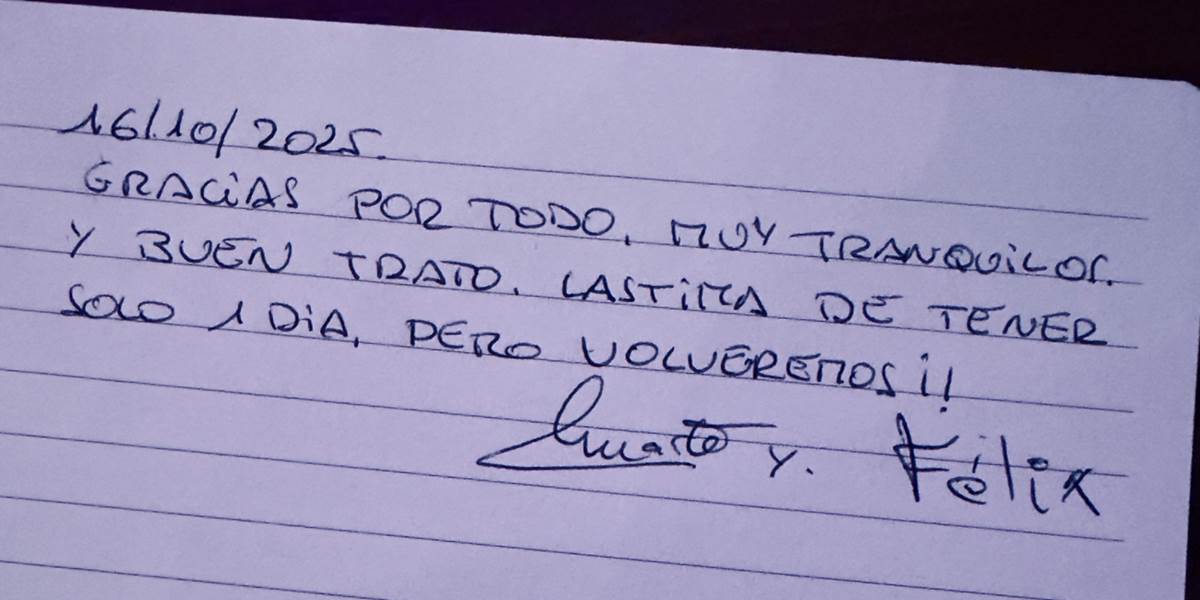 16/10/2025.
GRACIAS POR TODO. MUY TRANQUILOS.
Y BUEN TRATO. LASTIMA DE TENER
SOLO 1 DIA, PERO VOLVEREMOS ¡!
y. Félix